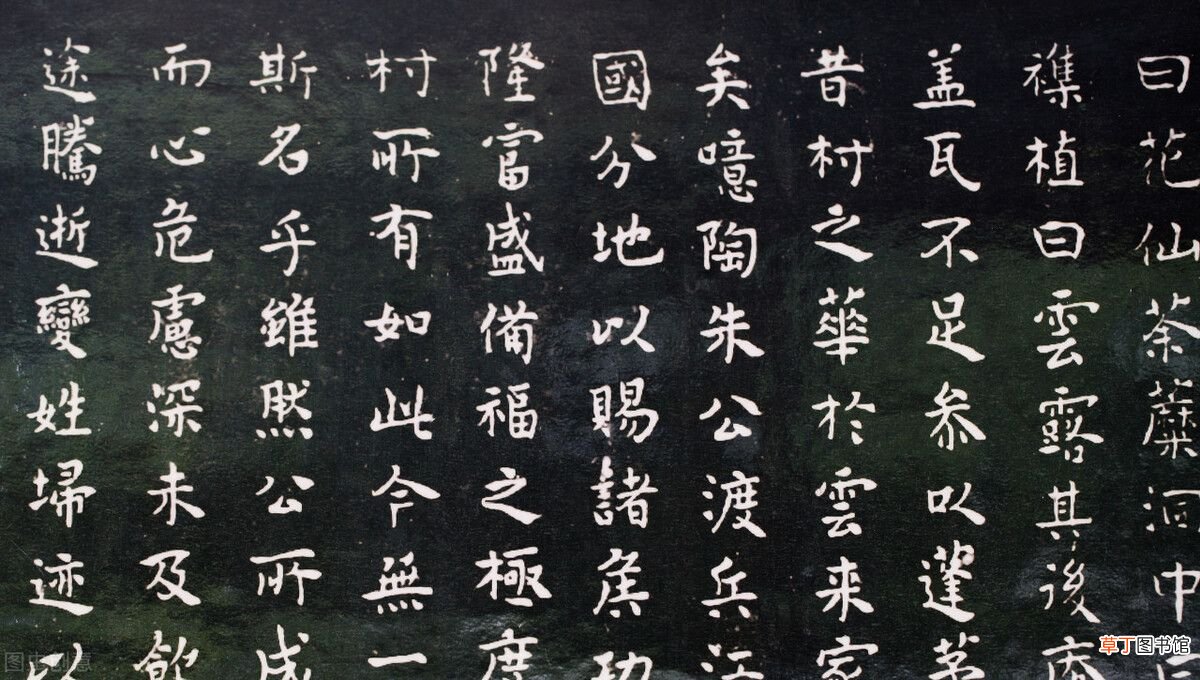 曰花仙茶蘪洞中
襍植曰雲露其後庵
盖瓦不足叅以蓬茅
昔村之華於雲来家
矣噫陶朱公渡兵江
國分地以賜諸矦功
隆富盛備福之極度
村所有如此今無一
斯名乎雖然公所成
而心危慮深未及
途騰逝變姓埽迹以
草丁图书馆
图虫创意